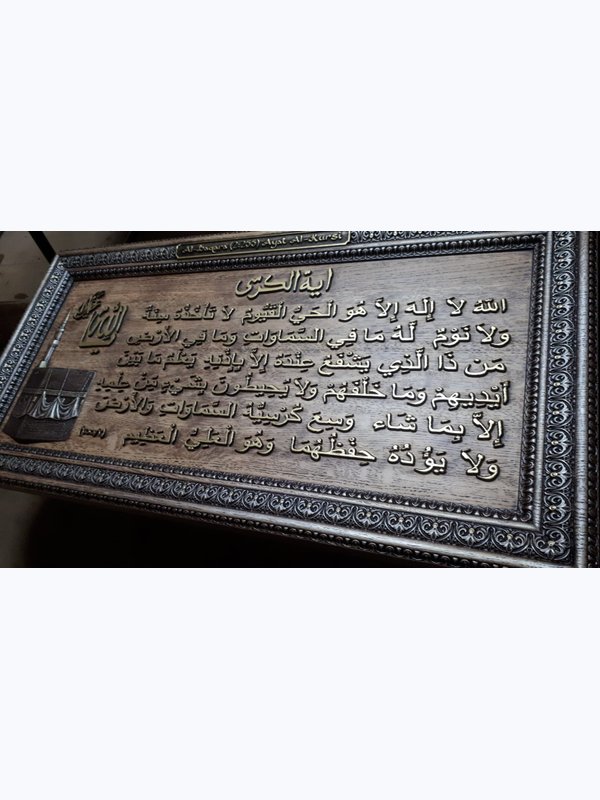 Al-Baqara (2:255) Ayat Al-Kursi
اية الكرسى
الله لا إله إلا هو الحي القيوم لا تأخذه سنة
ولا نوم له ما في السماوات وما في الأرض
من ذا الذي يشفع عنده إلا بإذنه يعلم ما بين
أيديهم وما خلفهم ولا يحيطون بشيء من علمه
إلا بما شاء وسع كرسيه السماوات والأرض
ولا يؤده حفظهما وهو العلي العظيم